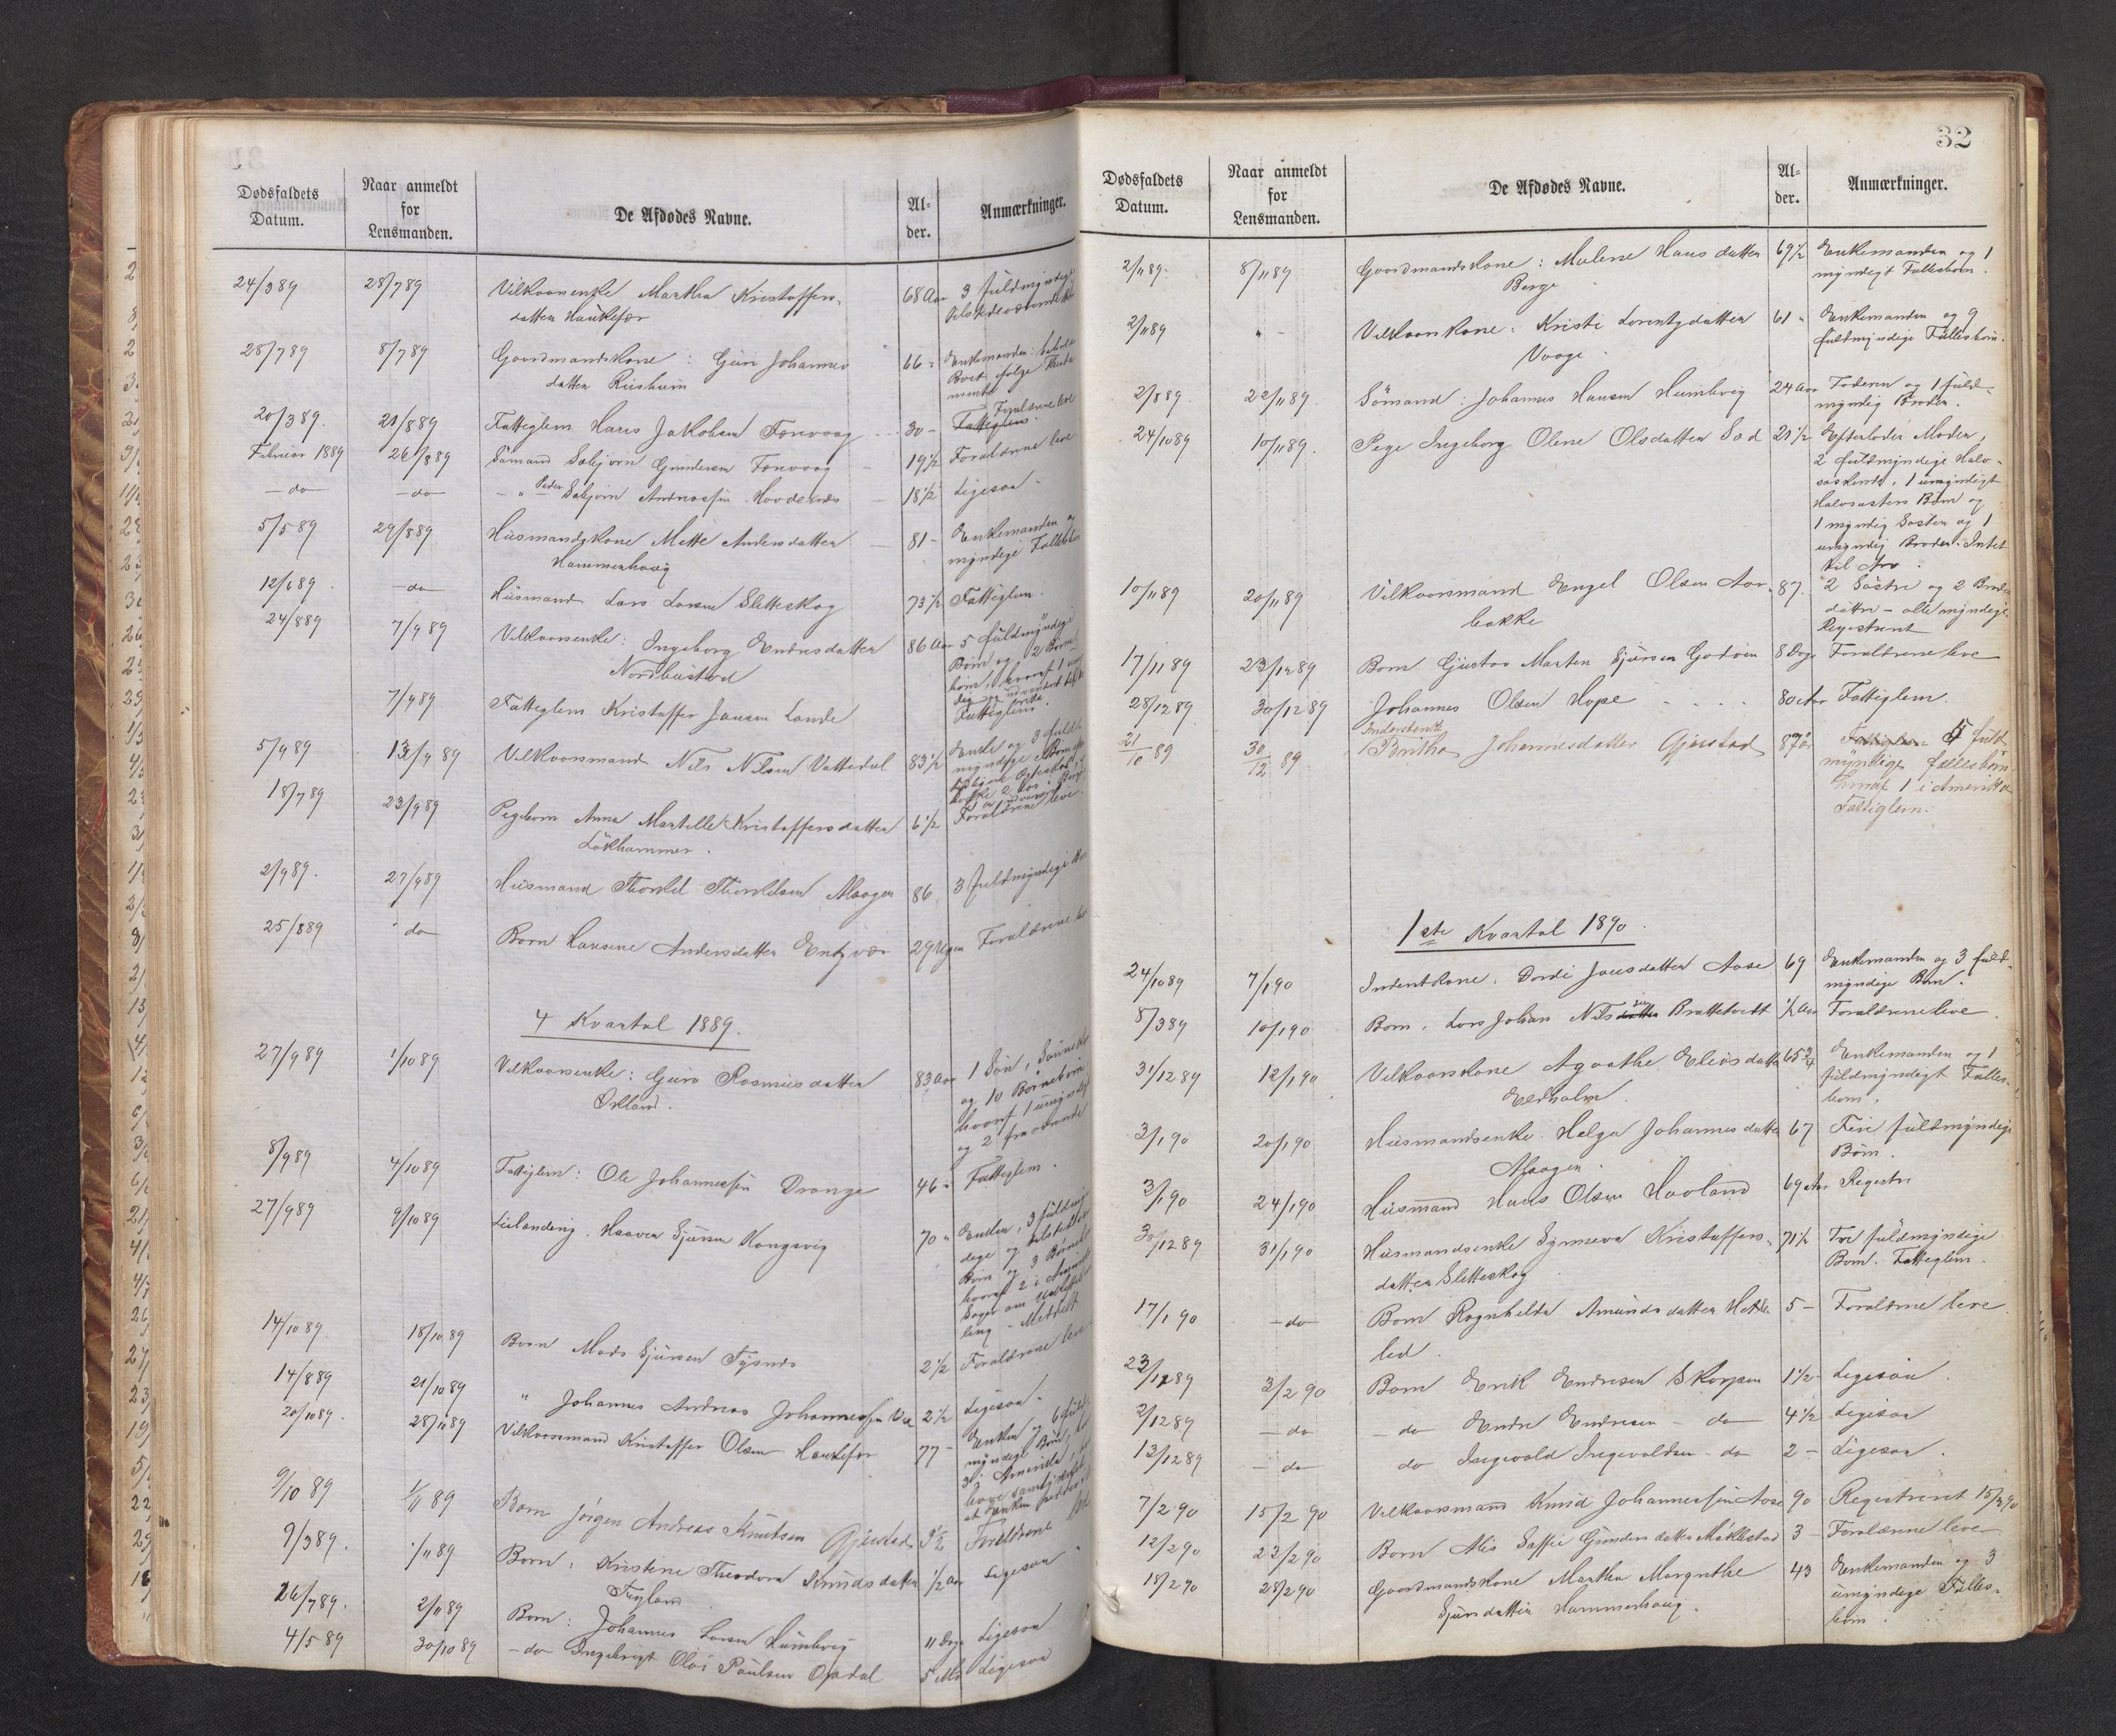 Dødsfaldets Datum.
Naar anmeldt for Lensmanden.
De Afdødes Navne.
Al-
der.
Anmærkninger.
24/3 89 28/7 89 Vilkaarsenke Martha Kristoffers- 68 Aar 3 fuldmyndige
datter Haukefær
28/7 89 8/7 89 Gaardmandskone: Guri Johannes 66 Enkemanden
datter Riishuin
20/3 89. 21/8 89 Fattiglem Hans Jakobsen Færevaag 30 - Forældrene leve
Fattiglem
Februar 1889 26/8 89 Sømand Sæbjørn Gundersen Færevaag 19 1/2 Forældrene leve
- do - - do - - " Peder Sæbjørn Andreassen 18 1/2 Ligesaa
5/5 89 29/8 89 Husmandskone Mette Andersdatter 81 - Enkemanden og
Hammerhaug myndige Fællesbørn
12/6 89. - do Husmand Lars Larsen Sletteskog 73 1/2 Fattiglem.
24/8 89 7/9 89 Vilkaarsenke: Ingeborg Endresdatter 86 Aar 5 fuldmyndige
Nordhustad Børn og 2 Børne-
børn, hvoraf 1
7/9 89 Fattiglem Kristoffer Jansen Lande Fattiglem
5/9 89 13/9 89 Vilkaarsmand Nils Nilsen Vattedal 83 1/2 Enke og 3 fuld-
myndige Børn
18/7 89 23/9 89 Pigebarn Anna Martille Kristoffersdatter 6 1/2 Forældrene leve.
Løkhammer.
2/9 89. 27/9 89 Husmand Thorkel Thorkelsen Maagen 86. 3 fuldmyndige
25/8 89 do Barn Lausine Andersdatter 29 Uger Forældrene
4 Kvartal 1889.
27/9 89 1/10 89 Vilkaarsenke: Guro Rasmusdatter 83 Aar 1 Søn,
Økland. og 10 Børnebørn
hvoraf 1 umyndig
og 2 fraværende
8/9 89 4/10 89 Fattiglem: Ole Johannessen Drange 46 - Fattiglem.
27/9 89 9/10 89 Haaven Sjursen Kongsvig 70 " Enken, 3 fuldmyn-
dige og
Børn og 3 Børneb
hvoraf 2 i
14/10 89 18/10 89 Barn Mads Sjursen Tysnes 2 1/2 Forældrene leve
14/8 89 21/10 89 " Johannes Andreas Johannessen 2 1/2 Ligesaa.
20/10 89. 28/10 89 Vilkaarsmand Kristoffer Olsen Haukefær 77 - Enken og 6 fuld-
myndige Børn,
3 i Amerika,
9/10 89 1/11 89 Barn Jørgen Andreas Knutsen Gjerstad 9 1/2 Forældrene
9/3 89. 1/11 89 Barn: Kristine Theodora Knudsdatter 1/2 Aar Ligesaa
26/7 89. 2/11 89 Barn: Johannes Larsen Humlevig 11 Dage Ligesaa
4/5 89 30/10 89 - do Ingebrigt Olai Paulsen Opdal 5 Md Ligesaa
32
Dødsfaldets Datum.
Naar anmeldt for Lensmanden.
De Afdødes Navne.
Al-
der.
Anmærkninger.
2/11 89. 8/11 89 Gaardmandskone: Malene Hansdatter 69 1/2 Enkemanden og 1
Berge myndigt Fællesbarn.
2/11 89 " - Vilkaarskone: Kristi Lorentzdatter 61 " Enkemanden og 9
Vaage fuldmyndige Fællesbørn.
2/8 89. 22/11 89. Sømand: Johannes Hansen Humlevig 24 Aar Faderen og 1 fuld-
myndig Broder.
24/10 89 10/11 89. Pige Ingeborg Oline Olsdatter Sød 21 1/2 Efterlader Moder,
2 fuldmyndige Halv-
søskende, 1 umyndigt
Halvsøsters Barn og
1 myndig Søster og 1
umyndig Broder. Intet
til Arv.
10/11 89 20/11 89 Vilkaarsmand Engel Olsen Aar- 87. 2 Søstre og 2 Broder
bakke døttre - alle myndige.
Registreret
17/11 89 23/12 89 Barn Gustav Marten Sjursen Godøen 8 Dage Forældrene leve
28/12 89 30/12 89 Johannes Olsen Hope 80 Aar Fattiglem.
21/10 89 30/12 89 Inderstenke Britha Johannesdatter Gjerstad 87 år Fattiglem 5 fuld
myndige fællesbørn
hvoraf 1 i Amerika
Fattiglem.
1ste Kvartal 1890.
24/10 89 7/1 90 Inderstkone: Dordi Jansdatter Aase 69 Enkemanden og 3 fuld-
myndige Børn.
8/3 89 10/1 90 Barn. Lars Johan Nilsdatter sen Brattetveit 1/2 Aar Forældrene leve.
31/12 89 12/1 90 Vilkaarskone Agathe Eliasdatter 65 3/4 Enkemanden og 1
Eidholm. fuldmyndigt Fælles-
barn.
3/1 90 20/1 90 Husmandsenke. Helga Johannesdatter 67 Fire fuldmyndige
Maagen. Børn.
3/1 90 24/1 90 Husmand Hans Olsen Haaland 69 Aar Registr
30/12 89 31/1 90 Husmandsenke Synneva Kristoffers- 71 1/2 Tre fuldmyndige
datter Sletteskog Børn. Fattiglem.
17/1 90 - do Barn Ragnhilda Amundsdatter Hette- 5 - Forældrene leve.
led.
23/12 89 3/2 90 Barn Erik Endresen Skorpen 1 1/2 Ligesaa.
2/12 89 - do - do Endre Endresen - do 4 1/2 Ligesaa
13/12 89 - do do Ingevald Ingevaldsen - do 2 - Ligesaa.
7/2 90 15/2 90 Vilkaarsmand Knud Johannessen Aase 90 Registreret 15/3 90
12/2 90 23/2 90 Barn Alis Saffie Gundersdatter Møklestad 3 - Forældrene leve
18/2 90 28/2 90 Gaardmandskone Martha Margrethe 43 Enkemanden og 3
Sjursdatter Hammerhaug. umyndige Fælles-
børn.